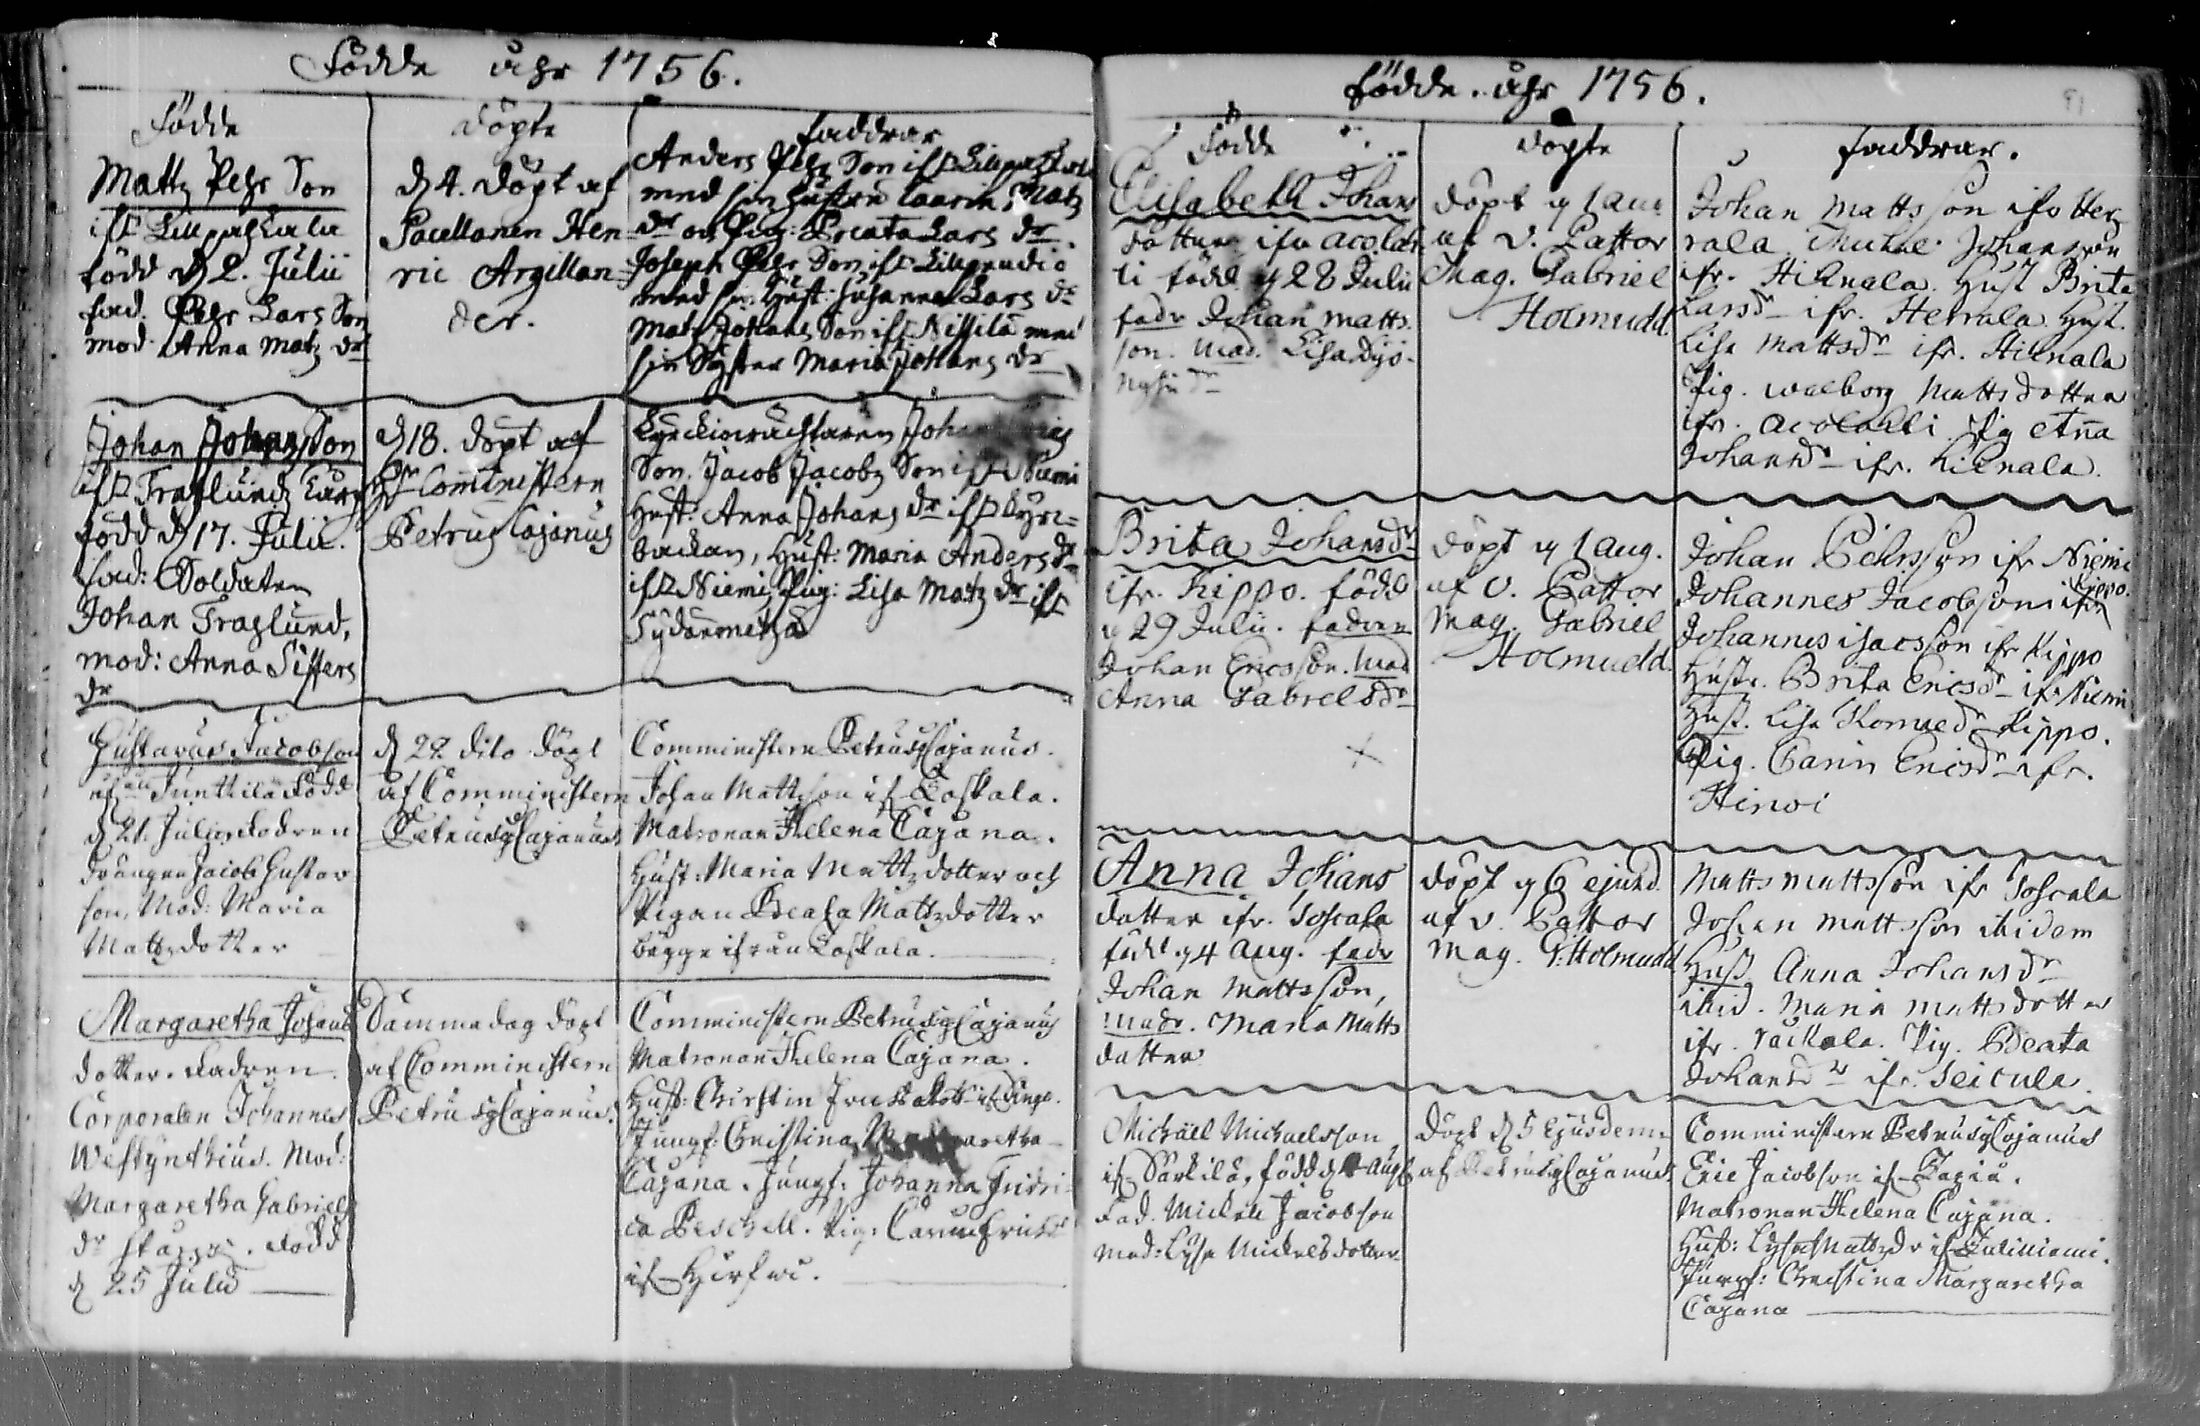 Födde åhr 1756.
Födde
Mattz Pehr Son
ifr
född d 2. Julii
fad. Pehr Lars Son
mod. Anna Matz dr
Döpte
d 4. döpt af
Sacellanen Hen
ric Argillan
der.
Faddrar
Anders Pehr Son ifr
med sin hustru Caarin Matz
dr och Pig: Beata Lars dr.
Joseph Pehr Son ifr
med sin Hust. Susanna Lars dr
Matz Johans Son ifr Nissilä med
sin Syster Maria Johans dr
Johan Johans Son
ifr Fraglunds
född d 17. Julii.
fad: Soldaten
Johan Fraglund,
mod: Anna Sissers
dr
d 18. döpt af
Hr Comministern
Petrus Cajanus
Kyrckiowächtaren Johan
Son. Jacob Jacobs Son ifr Niemi
Hust: Anna Johans dr ifr Kyrc=
backan, Hust: Maria Anders dr
ifr Niemi, Pig: Lisa Matz dr ifr
Sydänmetzä
Gustavus Jacobson
ifrån Junttila Född
d 21. Julii Fadren
Drängen Jacob Gustav
son, Mod: Maria
Mattzdotter
d 22 dito döpt
af Comministern
Petrus Cajanus
Comministern Petrus Cajanus.
Johan Mattsson if Koskala.
Matronan Helena Cajana.
Hust: Maria Mattzdotter och
Pigan Beata Mattzdotter
bägge ifrån Koskala.
Margaretha Johans
dotter. Fadren
Corporalen Johannes
Westynthius. Mod:
Margaretha Gabriels
dr. Född
d 25 Julii
Samma dag döpt
af Comministern
Petrus Cajanus.
Comministern Petrus Cajanus
Matronan Helena Cajana.
Hust: Christin
Jungf. Christina Margaretha
Cajana. Jungf. Johanna Fridri
ca Peschell. Pig: Carin Ericsdr
if
födde. åhr 1756.
Födde
Elisabeth Johans
dotter ifr Acolah
ti född d 28 Julii
fadr Johan Matts
son. mod. Lisa Dyo-
nysii dr
döpte
döpt d 1 aug
af v. Pastor
Mag. Gabriel
Holmudd
faddrar.
Johan Mattsson ifr Her
rala Michel Johansson
ifr. Hiknala. Hust Brita
Larsdr ifr. Herrala Hust.
Lisa Mattsdr ifr. Hiknala
Pig. Walborg Mattsdotter
ifr. Acolahti Pig Anna
Johansdr ifr. Hiknala.
Brita Johansdr
ifr. Kippo. född
d 29 Julii. fadren
Johan Ericsson. mod
Anna Gabrelsdr
döpt d 1 aug.
af v. Pastor
Mag. Gabriel
Holmudd.
Johan Pehrsson ifr Niemi
Johannes Jacobson ifr Kippo.
Johannes Isacsson ifr Kippo
Hustr. Brita Ericsdr ifr Niemi
Hust. Lisa Thomaedr Kippo.
Pig. Carin Ericsdr ifr.
Hirvoi
Anna Johans
dotter ifr. Toskala
född d 4 Aug. fadr
Johan Mattsson,
modr. Maria Matts
dotter
döpt d 6 ejusd.
af v. Pastor
Mag. G: Holmudd
Matts Mattsson ifr Toskala
Johan Mattsson ibidem
Hust Anna Johansdr
ibid. Maria Mattsdotter
ifr. Pig. Beata
Johansdr ifr. Seicula.
Michäel Michaelsson
if Särkilä, född d 4 Augs
Fad. Michell Jacobson
mod: Lysa Michelsdotter
Döpt d 5 Ejusdem
af Petrus Cajanus
Comministern Petrus Cajanus
Eric Jacobson if
Matronan Helena Cajana.
Hust: Lysa Mattzdr if
Jungf: Christina Margaretha
Cajana